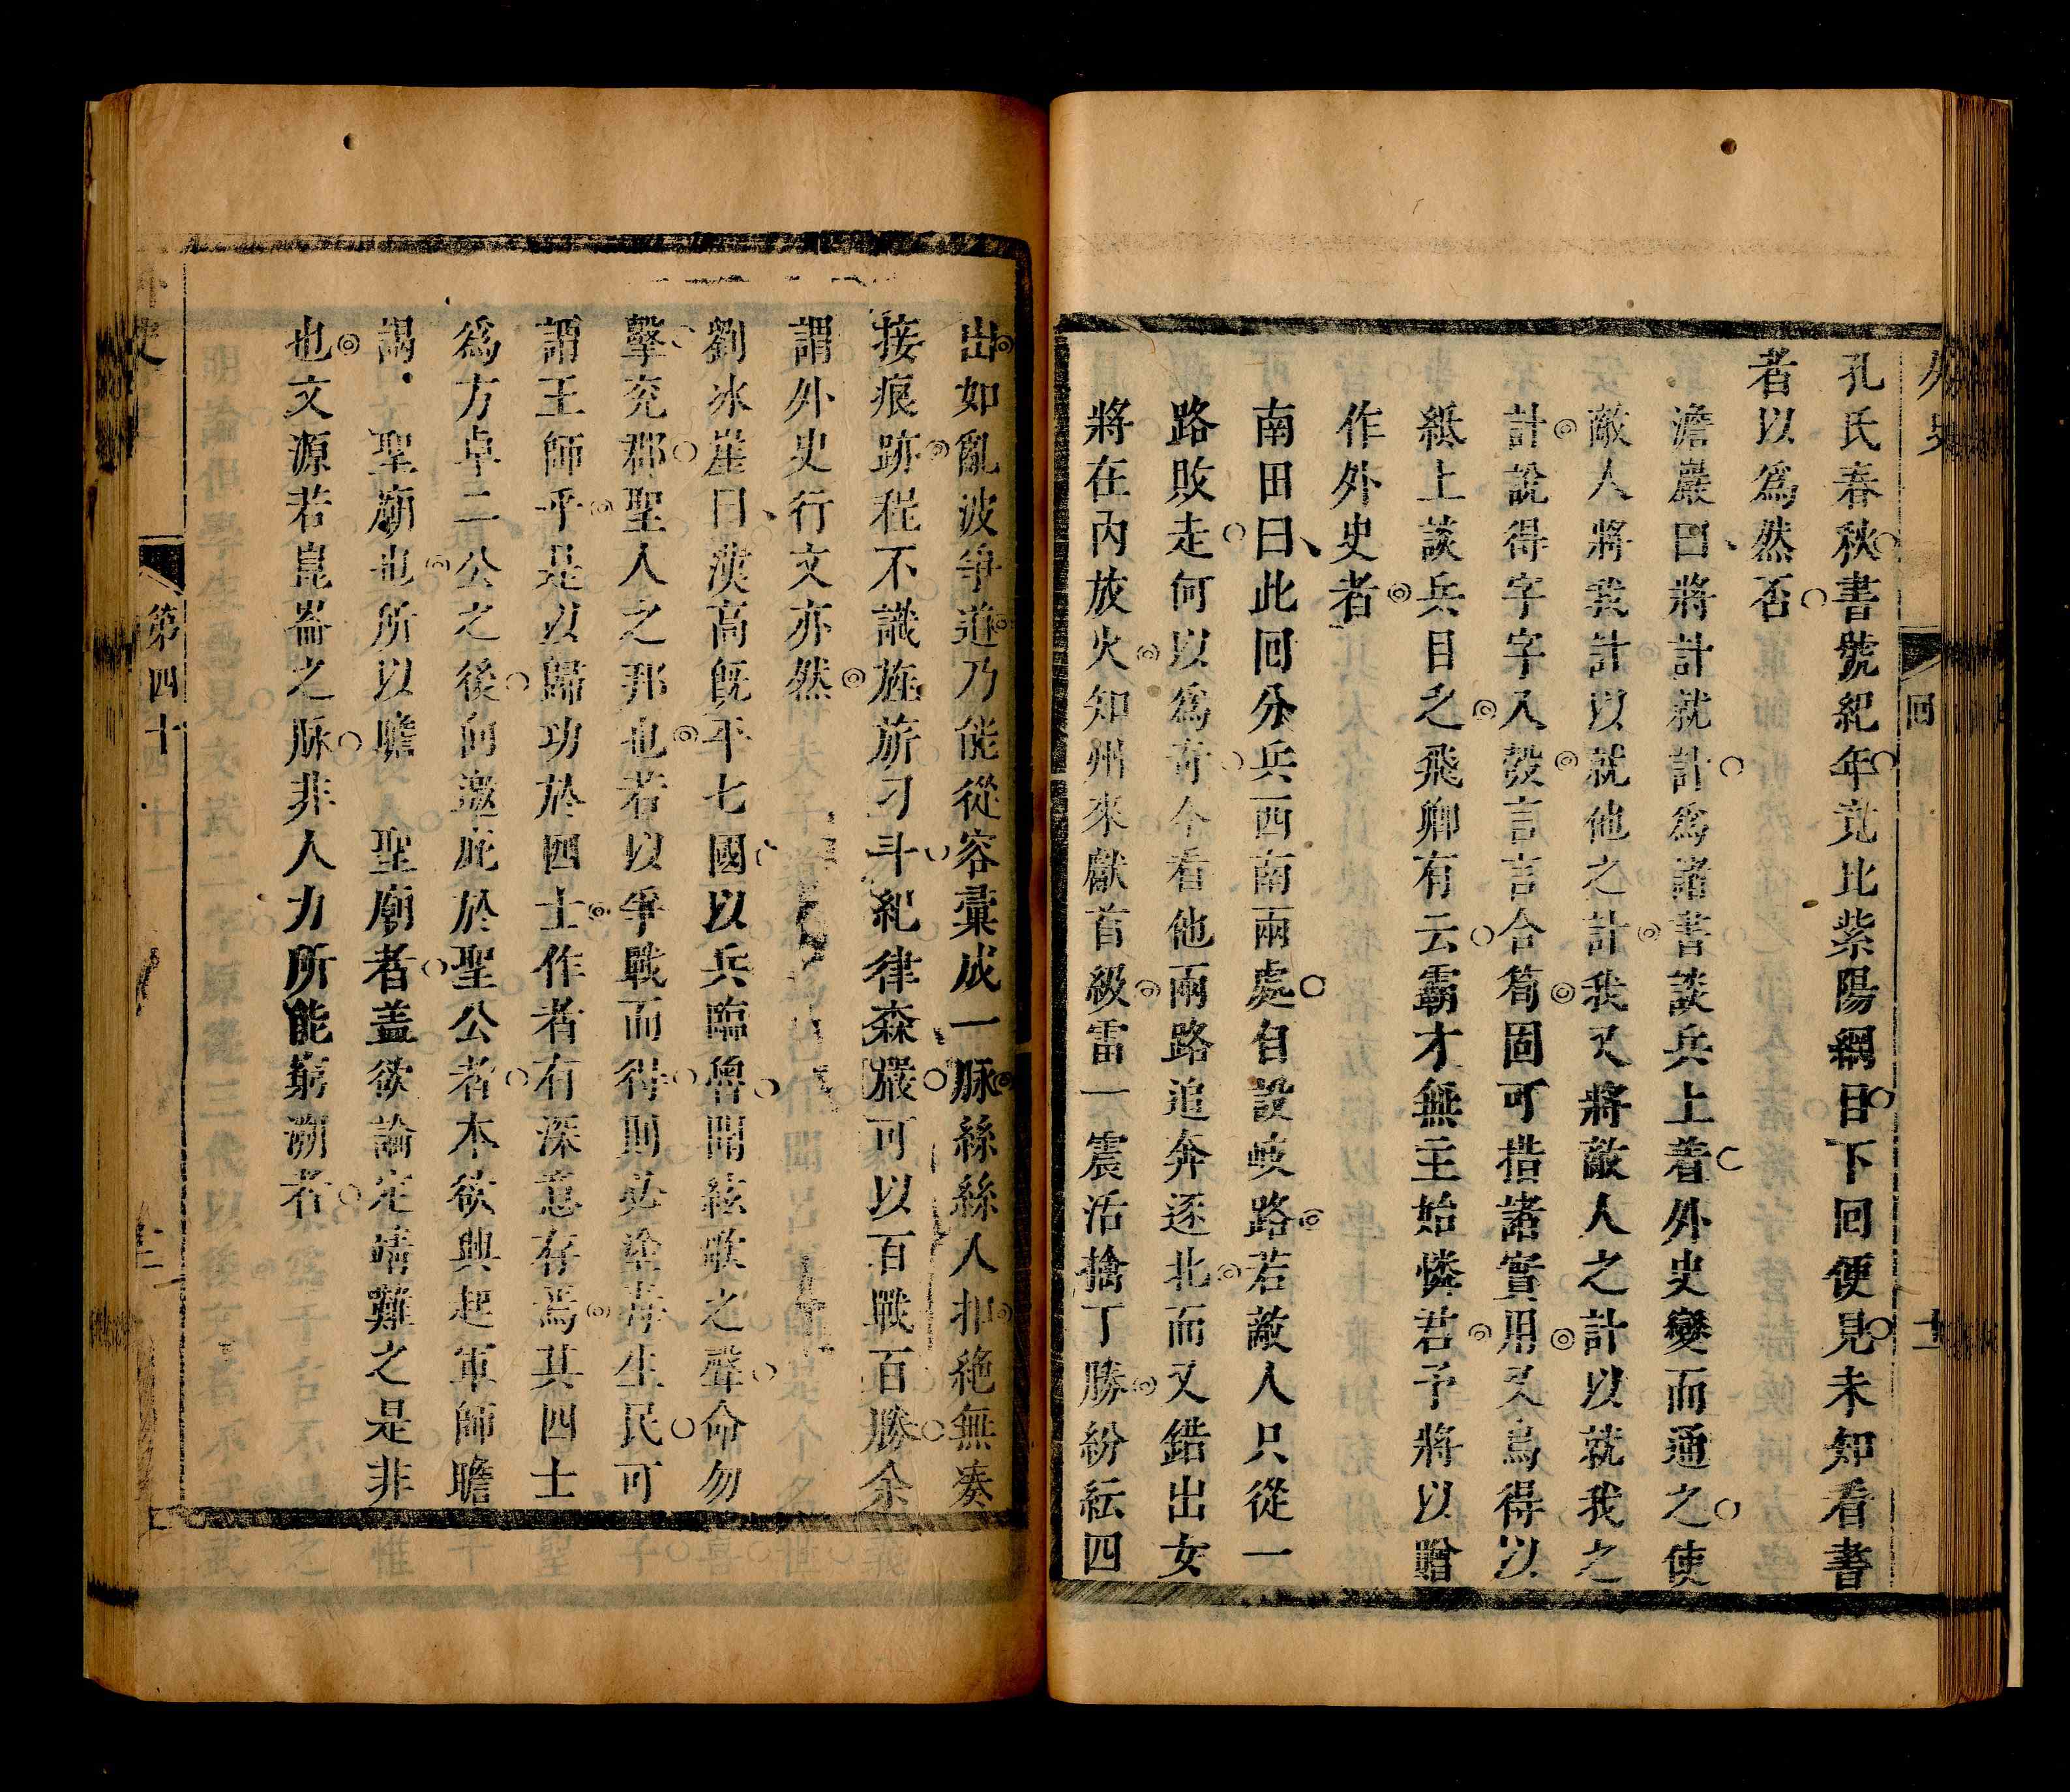 外史
回
十一
孔氏春秋書號紀年竟比紫陽綱目下回便見未知看書
者以爲然否
澹巖曰將計就計爲諸書談兵上着外史變而通之使
敵人將我計以就他之計我又將敵人之計以就我之
計說得字字入彀言言合筍固可措諸實用又烏得以
紙上談兵目之飛卿有云霸才無主始憐君予將以贈
作外史者
南田曰此回分兵西南兩處自設岐路若敵人只從一
路敗走何以爲奇今看他兩路追奔逐北而又錯出女
將在內放火知州來獻首級雷一震活擒丁勝紛紜四
出如亂波爭道乃能從容彙成一脉絲絲入扣絶無湊
接痕跡程不識旌旂刁斗紀律森嚴可以百戰百勝余
謂外史行文亦然
劉氷崖曰漢高旣平七國以兵臨魯聞絃歌之聲命勿
擊兖郡聖人之邦也若以爭戰而得則必塗毒生民可
謂王師乎是以歸功於四士作者有深意存焉其四士
爲方卓二公之後向邀庇於聖公者本欲興起軍師瞻
謁 聖廟也所以瞻 聖廟者蓋欲論定靖難之是非
也文源若崑崙之脉非人力所能窮溯者
第四十